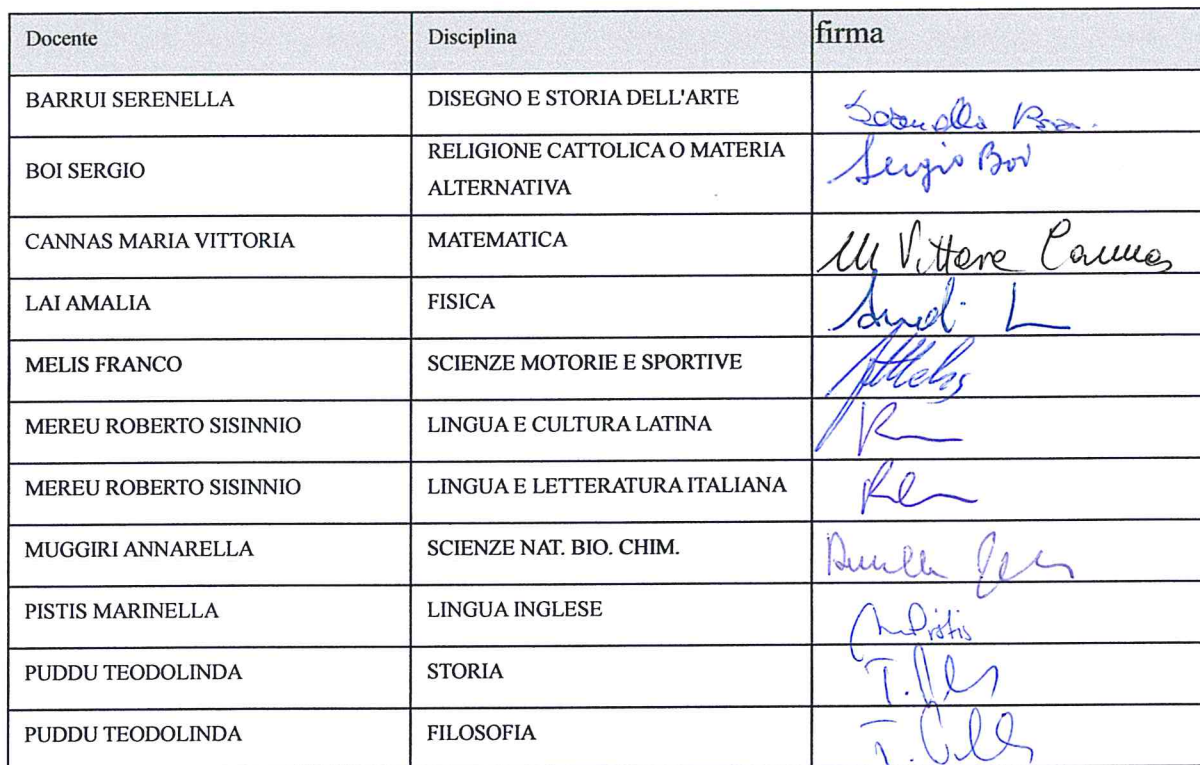 Docente Disciplina firma
BARRUI SERENELLA DISEGNO E STORIA DELL'ARTE
BOI SERGIO RELIGIONE CATTOLICA O MATERIA ALTERNATIVA Sergio Boi
CANNAS MARIA VITTORIA MATEMATICA M Vittoria Cannas
LAI AMALIA FISICA
MELIS FRANCO SCIENZE MOTORIE E SPORTIVE
MEREU ROBERTO SISINNIO LINGUA E CULTURA LATINA
MEREU ROBERTO SISINNIO LINGUA E LETTERATURA ITALIANA
MUGGIRI ANNARELLA SCIENZE NAT. BIO. CHIM.
PISTIS MARINELLA LINGUA INGLESE M Pistis
PUDDU TEODOLINDA STORIA T.
PUDDU TEODOLINDA FILOSOFIA T.